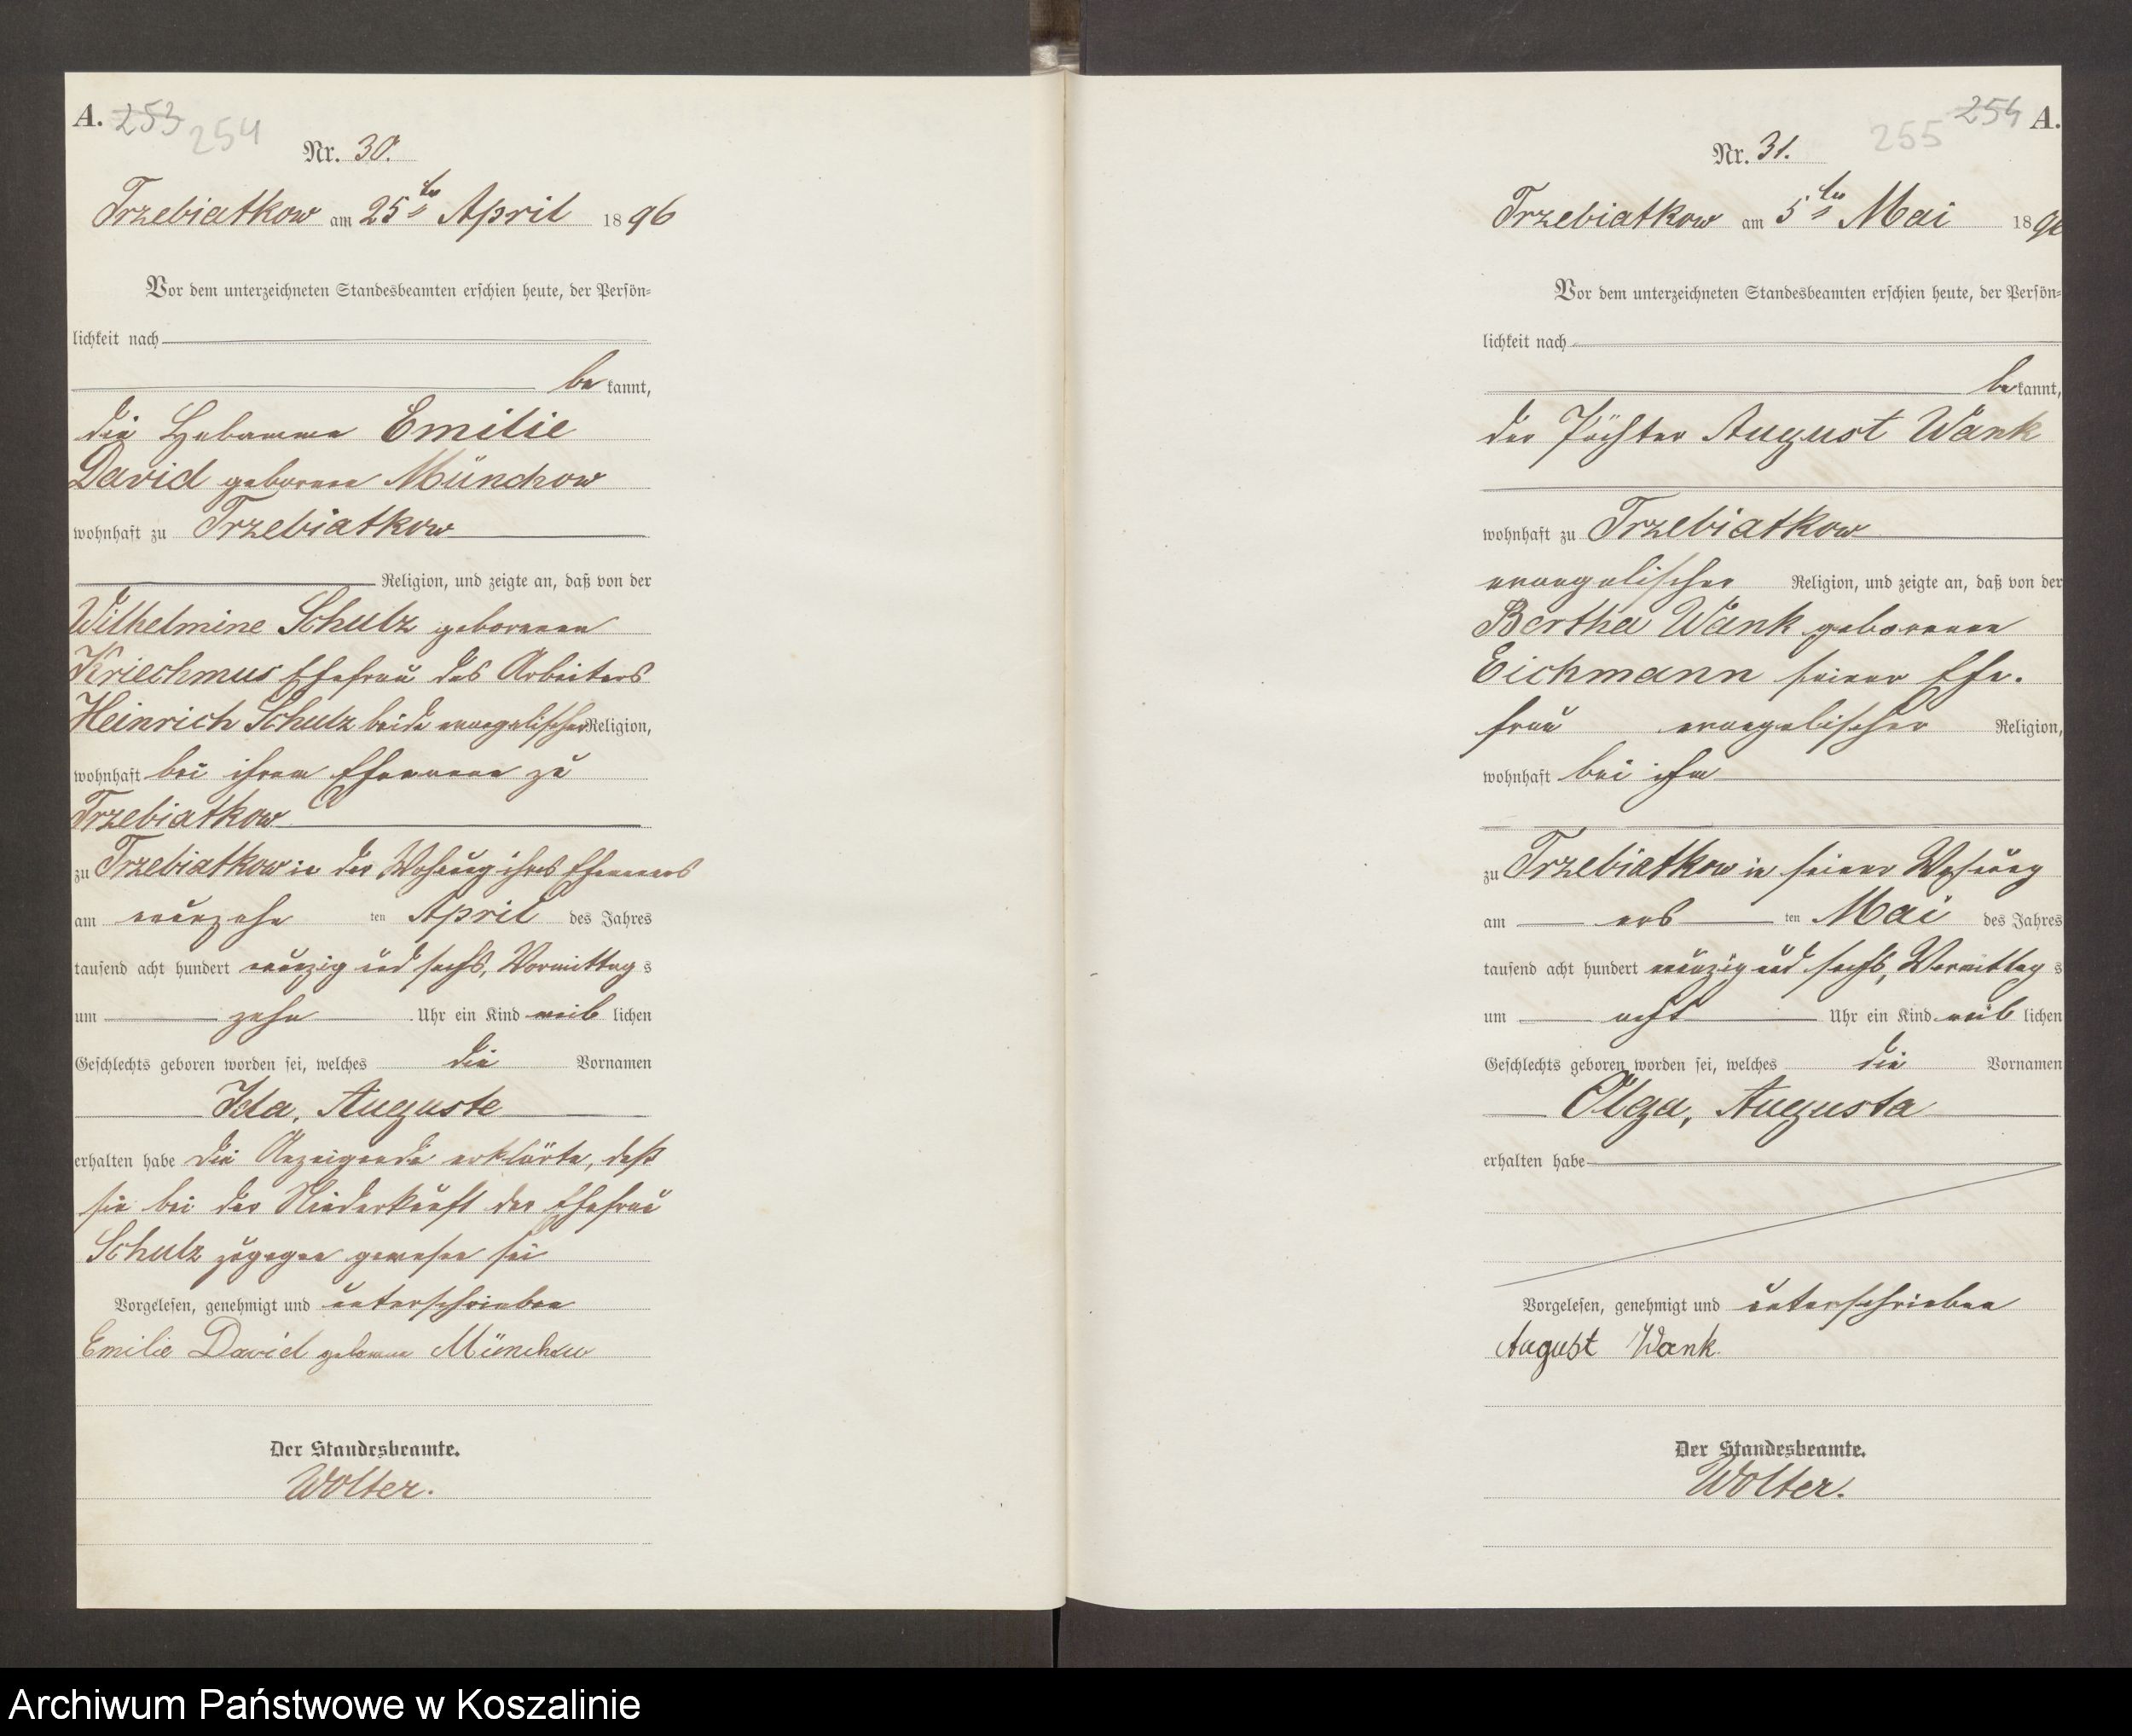 A. 253 254
Nr. 30.
Trzebiatkow am 25ten April 1896
Vor dem unterzeichneten Standesbeamten erschien heute, der Persön-
lichkeit nach
bekannt,
die Hebamme Emilie
David geborene Münchow
wohnhaft zu Trzebiatkow
Religion, und zeigte an, daß von der
Wilhelmine Schulz geborenen
Kriechmus Ehefrau des Arbeiters
Heinrich Schulz beide evangelischer Religion,
wohnhaft bei ihrem Ehemann zu
Trzebiatkow
zu Trzebiatkow in der Wohnung ihres Ehemannes
am neunzehnten April des Jahres
tausend acht hundert neunzig und sechs, Vormittags
um zehn Uhr ein Kind weiblichen
Geschlechts geboren worden sei, welches die Vornamen
Ida, Auguste
erhalten habe die Anzeigende erklärte, daß
sie bei der Niederkunft der Ehefrau
Schulz zugegen gewesen sei
Vorgelesen, genehmigt und unterschrieben
Emilie David geborene Münchow
Der Standesbeamte.
Wolter.
254 A.
255
Nr. 31.
Trzebiatkow am 5ten Mai 1896
Vor dem unterzeichneten Standesbeamten erschien heute, der Persön-
lichkeit nach
bekannt,
der Pächter August Wank
wohnhaft zu Trzebiatkow
evangelischer Religion, und zeigte an, daß von der
Bertha Wank geborenen
Eichmann seiner Ehe-
frau evangelischer Religion,
wohnhaft bei ihm
zu Trzebiatkow in seiner Wohnung
am ersten Mai des Jahres
tausend acht hundert neunzig und sechs, Vormittags
um acht Uhr ein Kind weiblichen
Geschlechts geboren worden sei, welches die Vornamen
Olga, Augusta
erhalten habe
Vorgelesen, genehmigt und unterschrieben
August Wank.
Der Standesbeamte.
Wolter.
Archiwum Państwowe w Koszalinie